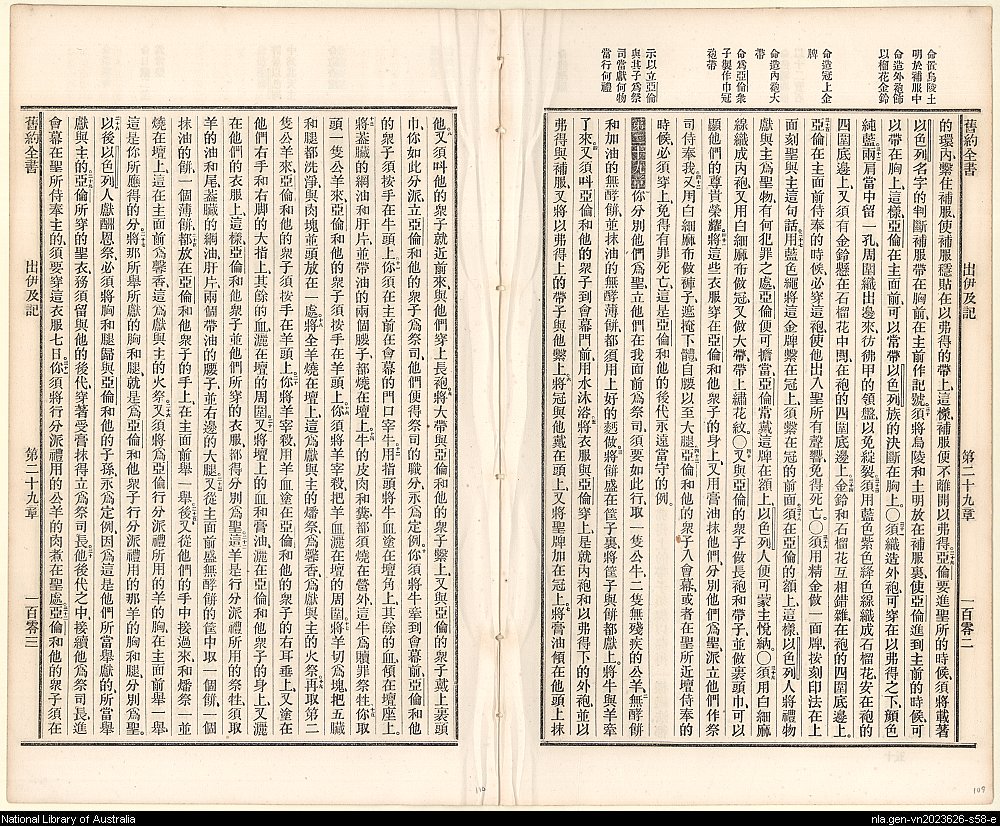 舊約全書
出伊及記
第二十九章
一百零二
命置烏陵土
明於補服中
命造外袍飾
以榴花金鈴
命造冠上金
牌
命造內袍大
帶
命爲亞倫衆
子製作巾冠
袍帶
示以立亞倫
與其子爲祭
司當獻何物
當行何禮
的環內繫住補服使補服穩貼在以弗得的帶上這樣補服便不離開以弗得亞倫要進聖所的時候須將載著
以色列名字的判斷補服帶在胸前在主面前作記號須將烏陵和土明放在補服裏使亞倫進到主前的時候可
以帶在胸上這樣亞倫在主面前可以常帶以色列族的決斷在胸上〇須織造外袍可穿在以弗得之下顏色
純藍兩肩當中留一孔周圍織出邊來彷彿甲的領盤以免綻裂須用藍色紫色絳色線織成石榴花安在袍的
四圍底邊上又須有金鈴懸在石榴花中間在袍的四圍底邊上金鈴和石榴花互相錯雜在袍的四圍底邊上
亞倫在主面前侍奉的時候必穿這袍使他出入聖所有聲響免得死亡〇須用精金做一面牌按刻印法在上
面刻聖與主這句話用藍色繩將這金牌繫在冠上須繫在冠的前面須在亞倫的額上這樣以色列人將禮物
獻與主爲聖物有何犯罪之處亞倫便可擔當亞倫當戴這牌在額上以色列人便可蒙主悅納〇須用白細麻
線織成內袍又用白細麻布做冠又做大帶帶上繡花紋〇又與亞倫的衆子做長袍和帶子並做裹頭巾可以
顯他們的尊貴榮耀將這些衣服穿在亞倫和他衆子的身上又用膏油抹他們分別他們爲聖派立他們作祭
司侍奉我又用白細麻布做褲子遮掩下體自腰以至大腿亞倫和他的衆子入會幕或者在聖所近壇侍奉的
時候必須穿上免得有罪死亡這是亞倫和他的後代永遠當守的例
第二十九章你分別他們爲聖立他們在我面前爲祭司須要如此行取一隻公牛二隻無殘疾的公羊無酵餅
和加油的無酵餅並抹油的無酵薄餅都須用上好的麪做將餅盛在筐子裏將筐子與餅都獻上將牛與羊牽
了來又須叫亞倫和他的衆子到會幕門前用水沐浴將衣服與亞倫穿上是就內袍和以弗得下的外袍並以
弗得與補服又將以弗得上的帶子與他繫上將冠與他戴在頭上又將聖牌加在冠上將膏油傾在他頭上抹
他又須叫他的衆子就近前來與他們穿上長袍將大帶與亞倫和他的衆子繫上又與亞倫的衆子戴上裹頭
巾你如此分派立亞倫和他的衆子爲祭司他們便得祭司的職分永爲定例你須將牛牽到會幕前亞倫和他
的衆子須按手在牛頭上你須在主面前在會幕的門口宰牛用指頭將牛血塗在壇角上其餘的血傾在壇座上
將蓋臟的網油和肝片並帶油的兩個腰子都燒在壇上牛的皮肉和糞都須燒在營外這牛爲贖罪祭牲你取
頭一隻公羊來亞倫和他的衆子須按手在羊頭上你須將羊宰殺把羊血灑在壇的周圍將羊切爲塊把五臟
和腿都洗淨與肉塊並頭放在一處將全羊燒在壇上這爲獻與主的燔祭爲馨香爲獻與主的火祭再取第二
隻公羊來亞倫和他的衆子須按手在羊頭上你將羊宰殺用羊血塗在亞倫和他的衆子的右耳垂上又塗在
他們右手和右脚的大指上其餘的血灑在壇的周圍又將壇上的血和膏油灑在亞倫和他衆子的身上又灑
在他們的衣服上這樣亞倫和他的衆子並他們所穿的衣服都得分別爲聖這羊是行分派禮所用的祭牲須取
羊的油和尾蓋臟的網油肝片兩個帶油的腰子並右邊的大腿又從主面前盛無酵餅的筐中取一個餅一個
抹油的餅一個薄餅都放在亞倫和他衆子的手上在主面前舉一舉後又從他們的手中接過來和燔祭一並
燒在壇上這在主面前爲馨香這爲獻與主的火祭又須將爲亞倫行分派禮所用的羊的胸在主面前舉一舉
這是你所應得的分將那所舉所獻的胸和腿就是爲亞倫和他衆子行分派禮用的那羊的胸和腿分別爲聖
以後以色列人獻酬恩祭必須將胸和腿歸與亞倫和他的子孫永爲定例因爲這是他們所當舉獻的所當舉
獻與主的亞倫所穿的聖衣務須留與他的後代穿著受膏抹得立爲祭司長他後代之中接續他爲祭司長進
會幕在聖所侍奉主的須要穿這衣服七日你須將行分派禮用的公羊的肉煮在聖處亞倫和他的衆子須在
舊約全書
出伊及記
第二十九章
一百零三
110
109
National Library of Australia
nla.gen-vn2023626-s58-e